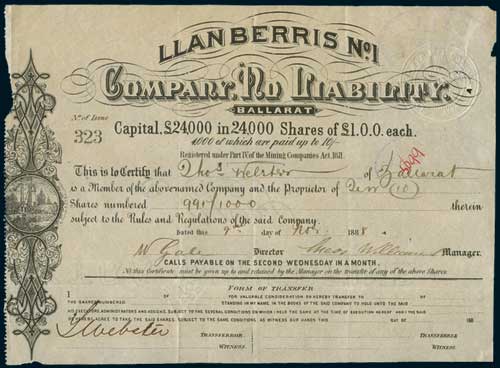 LLANBERRIS No. 1
COMPANY, No LIABILITY.
BALLARAT
No. of Issue
323
Capital, £24000 in 24,000 Shares of £1.0.0. each.
4000 of which are paid up to 10/-
Registered under Part IV of the Mining Companies Act, 1871
This is to Certify that Thos. Webster of Ballarat
is a Member of the abovenamed Company and the Proprietor of Ten (10)
Shares numbered 991/1000 therein
subject to the Rules and Regulations of the said Company.
Dated this day of Nov. 1888
W Gale Director Manager.
CALLS PAYABLE ON THE SECOND WEDNESDAY IN A MONTH.
N.B. this Certificate must be given up to and retained by the Manager on the transfer of any of the above Shares.
FORM OF TRANSFER
I OF FOR VALUABLE CONSIDERATION DO HEREBY TRANSFER TO OF
SHARES NUMBERED STANDING IN MY NAME IN THE BOOKS OF THE SAID COMPANY TO HOLD UNTO THE SAID
EXECUTORS ADMINISTRATORS AND ASSIGNS, SUBJECT TO THE SEVERAL CONDITIONS ON WHICH I HELD THE SAME AT THE TIME OF EXECUTION HEREOF AND I THE SAID
DO HEREBY AGREE TO TAKE THE SAID SHARES, SUBJECT TO THE SAME CONDITIONS. AS WITNESS OUR HANDS THIS DAY OF 188
T Webster TRANSFERROR. TRANSFERREE.
WITNESS. WITNESS.